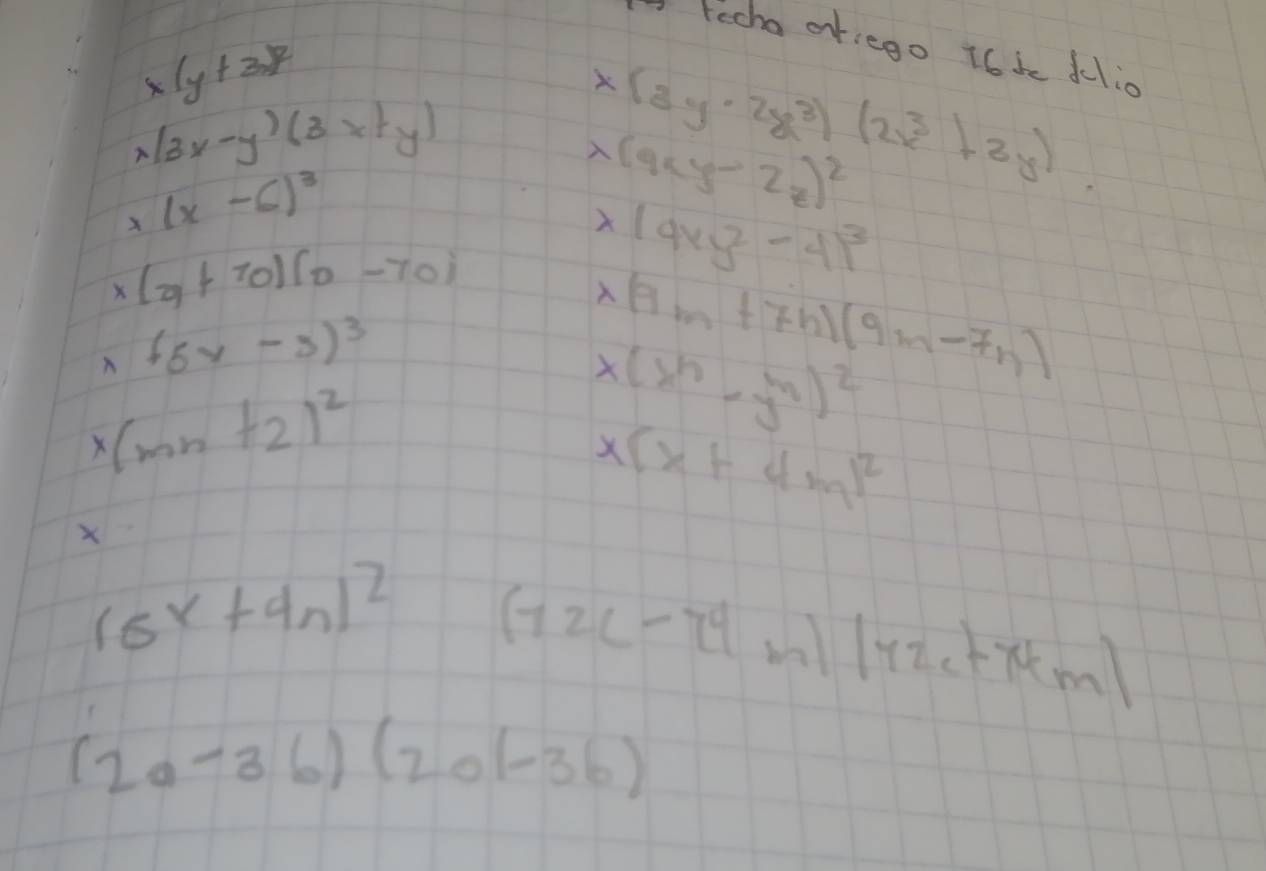 Fecha entrego 16 de Julio
x (y+3)²
x (3x-y)(3x+y)
x (x-6)³
x (a+10)(a-10)
x (5x-3)³
x (mn+2)²
x
x (3y-2x³)(2x³+3y)
x (9xy-2z)²
x (4xy²-4)³
x (9m+7n)(9m-7n)
x (xⁿ-yᵐ)²
x (x+4m)²
(5x+4n)² (12c-14m)(12c+14m)
(2a-3b)(2a+3b)